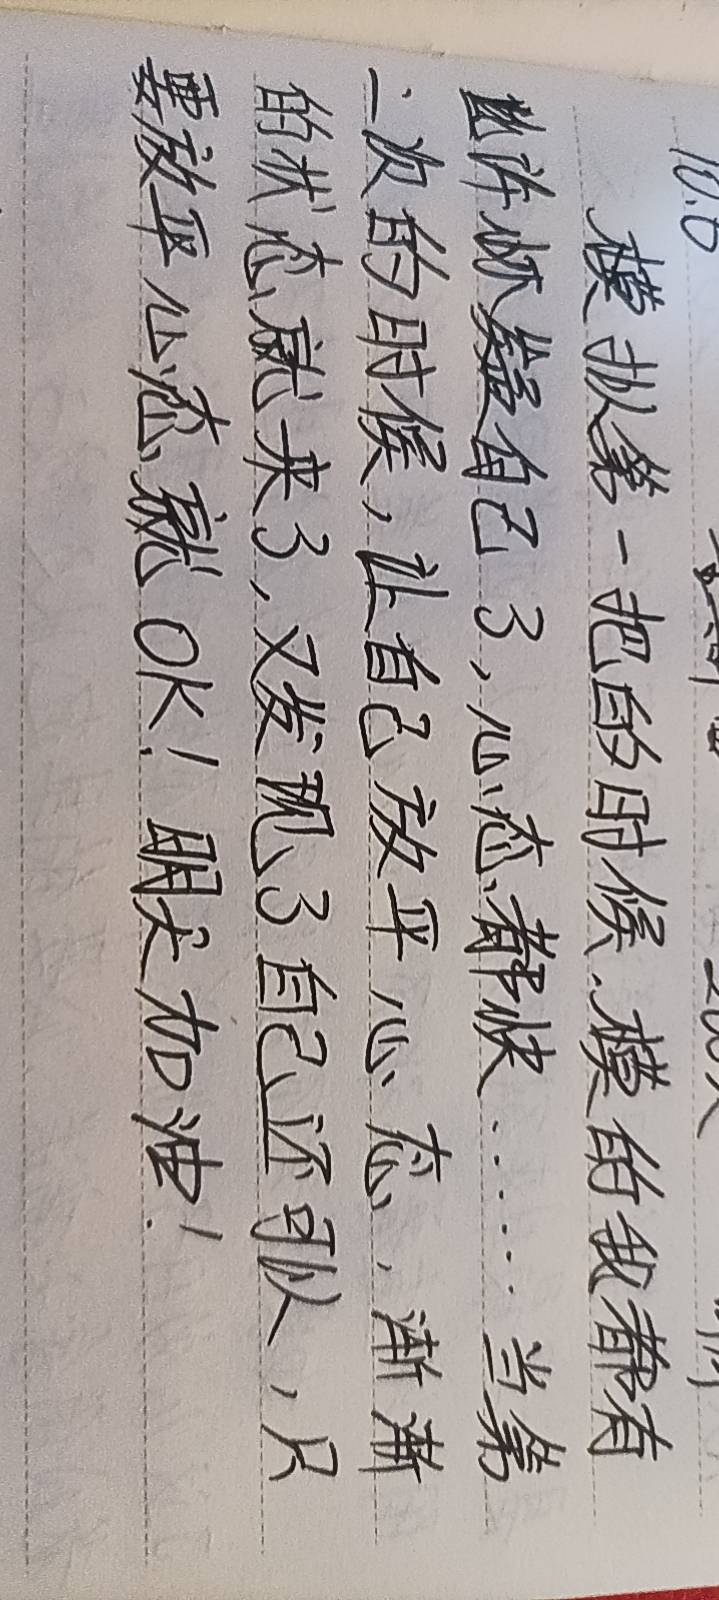 10.6
模拟第一把的时候，模的我都有
些许怀疑自己了，心态都快……当第
二次的时候，让自己放平心态，渐渐
的状态就来了，又发现了自己还可以，只
要放平心态就OK！明天加油！